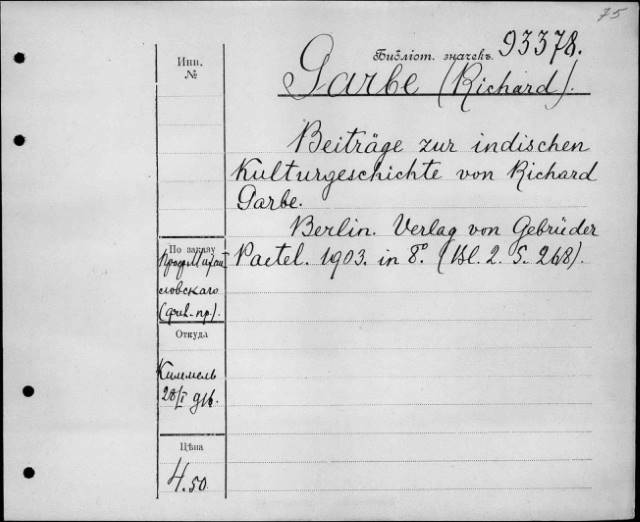 75
Библіот. значекъ. 93378.
Инв.
№
Garbe (Richard).
Beiträge zur indischen
Kulturgeschichte von Richard
Garbe.
Berlin. Verlag von Gebrüder
Paetel. 1903. in 8°. (Bl. 2. S. 268).
По заказу
Проф. Михай
ловскаго
Откуда
Киммель
28/I
Цѣна
4.50